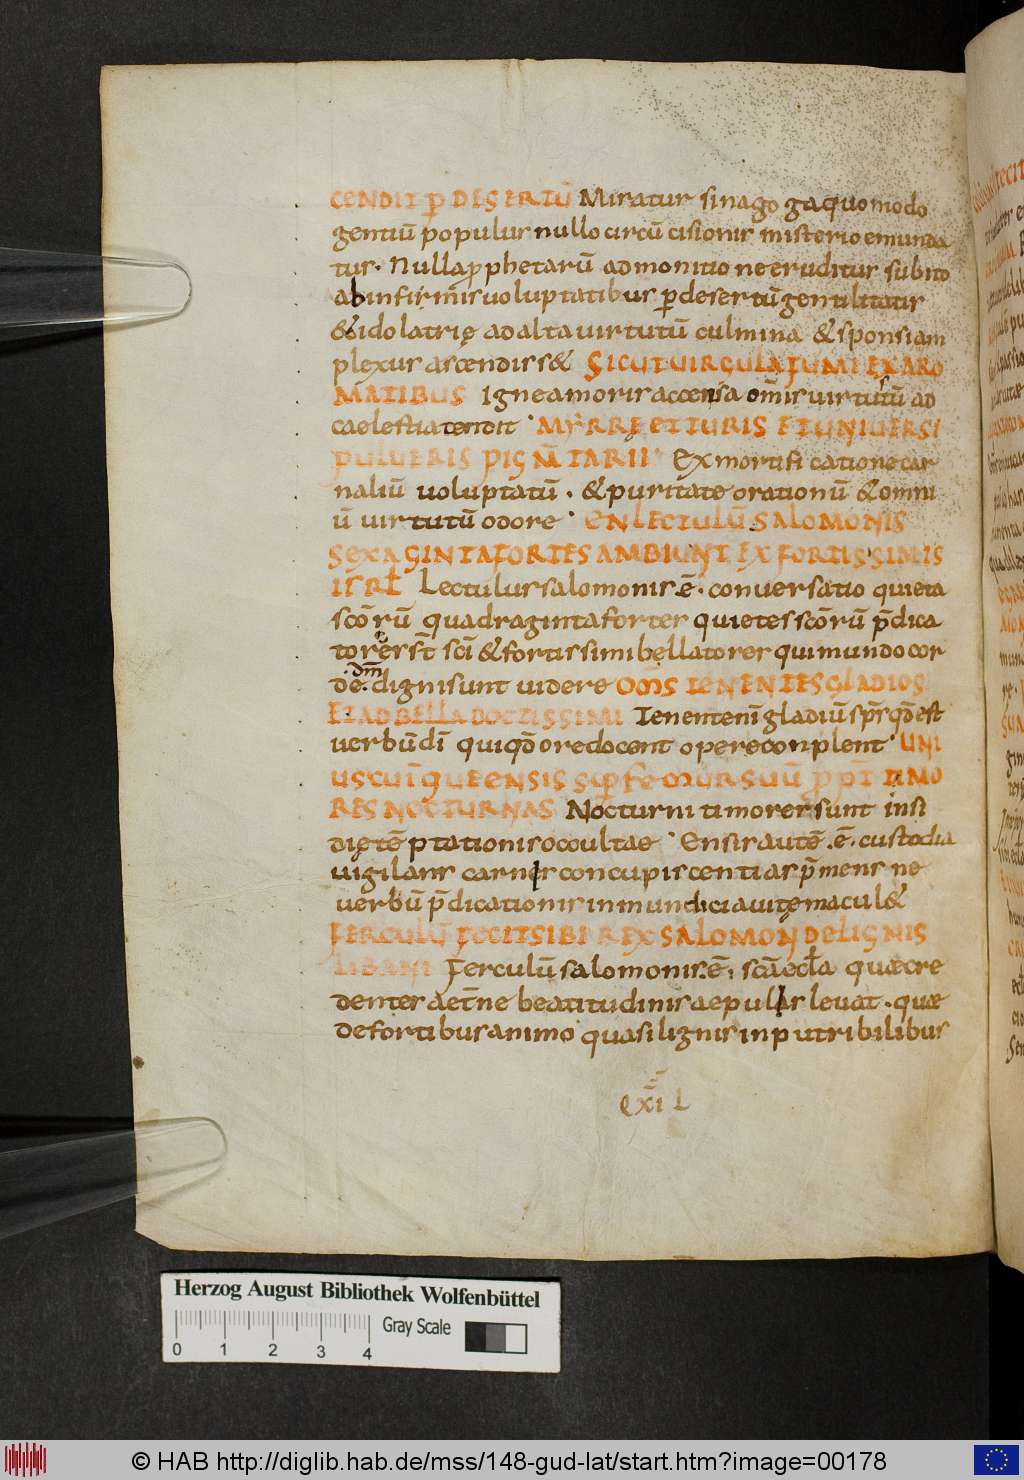 CENDIT ꝑ DESERTŪ Miratur sinagoga quomodo
gentiū populus nullo circūcisionis misterio emunda
tus. Nulla ꝓphetarū admonitione eruditus subito
ab infirmis uoluptatibus ꝑ desertū gentilitatis
& idolatrię ad alta uirtutū culmina & sponsi am
plexus ascendisset SICUT UIRGULA FUMI EX ARO
MATIBUS Igne amoris accensa om̄is uirtutū ad
caelestia tendit MYRRE ET TURIS ET UNIUERSI
PULUERIS PIGM̄TARII Ex mortificatione car
naliū uoluptatū. & puritate orationū & omni
ū uirtutū odore EN LECTULŪ SALOMONIS
SEXAGINTA FORTES AMBIUNT EX FORTISSIMIS
ISRL̄ Lectulus salomonis ē. conuersatio quieta
scōrū quadraginta fortes quietes scōrū p̄dica
tores st̄ sc̄i & fortissimi bellatores qui mundo cor
de. dm̄ digni sunt uidere OM̄S TENENTES GLADIOS
ET AD BELLA DOCTISSIMI Tenentem̄ gladiū sp̄s qd̄ est
uerbū dī qui qd̄ ore docent opere conplent UNI
USCUIUSQUE ENSIS SUP FEMUR SUUM ꝓpT̄ TIMO
RES NOCTURNAS Nocturni timores sunt insi
dię tēptationis occultae Ensis autē. ē. custodia
uigilans carnis concupiscentias p̄mens ne
uerbū p̄dicationis inmundicia uitę maculet
FERCULŪ FECIT SIBI REX SALOMON DE LIGNIS
LIBANI Ferculū salomonis. ē. sc̄a eccl̄a quae cre
dentes aet̄ne beatitudinis aepulis leuat. quae
de fortibus animo quasi lignis inputribilibus
Herzog August Bibliothek Wolfenbüttel
Gray Scale
0 1 2 3 4
© HAB http://diglib.hab.de/mss/148-gud-lat/start.htm?image=00178